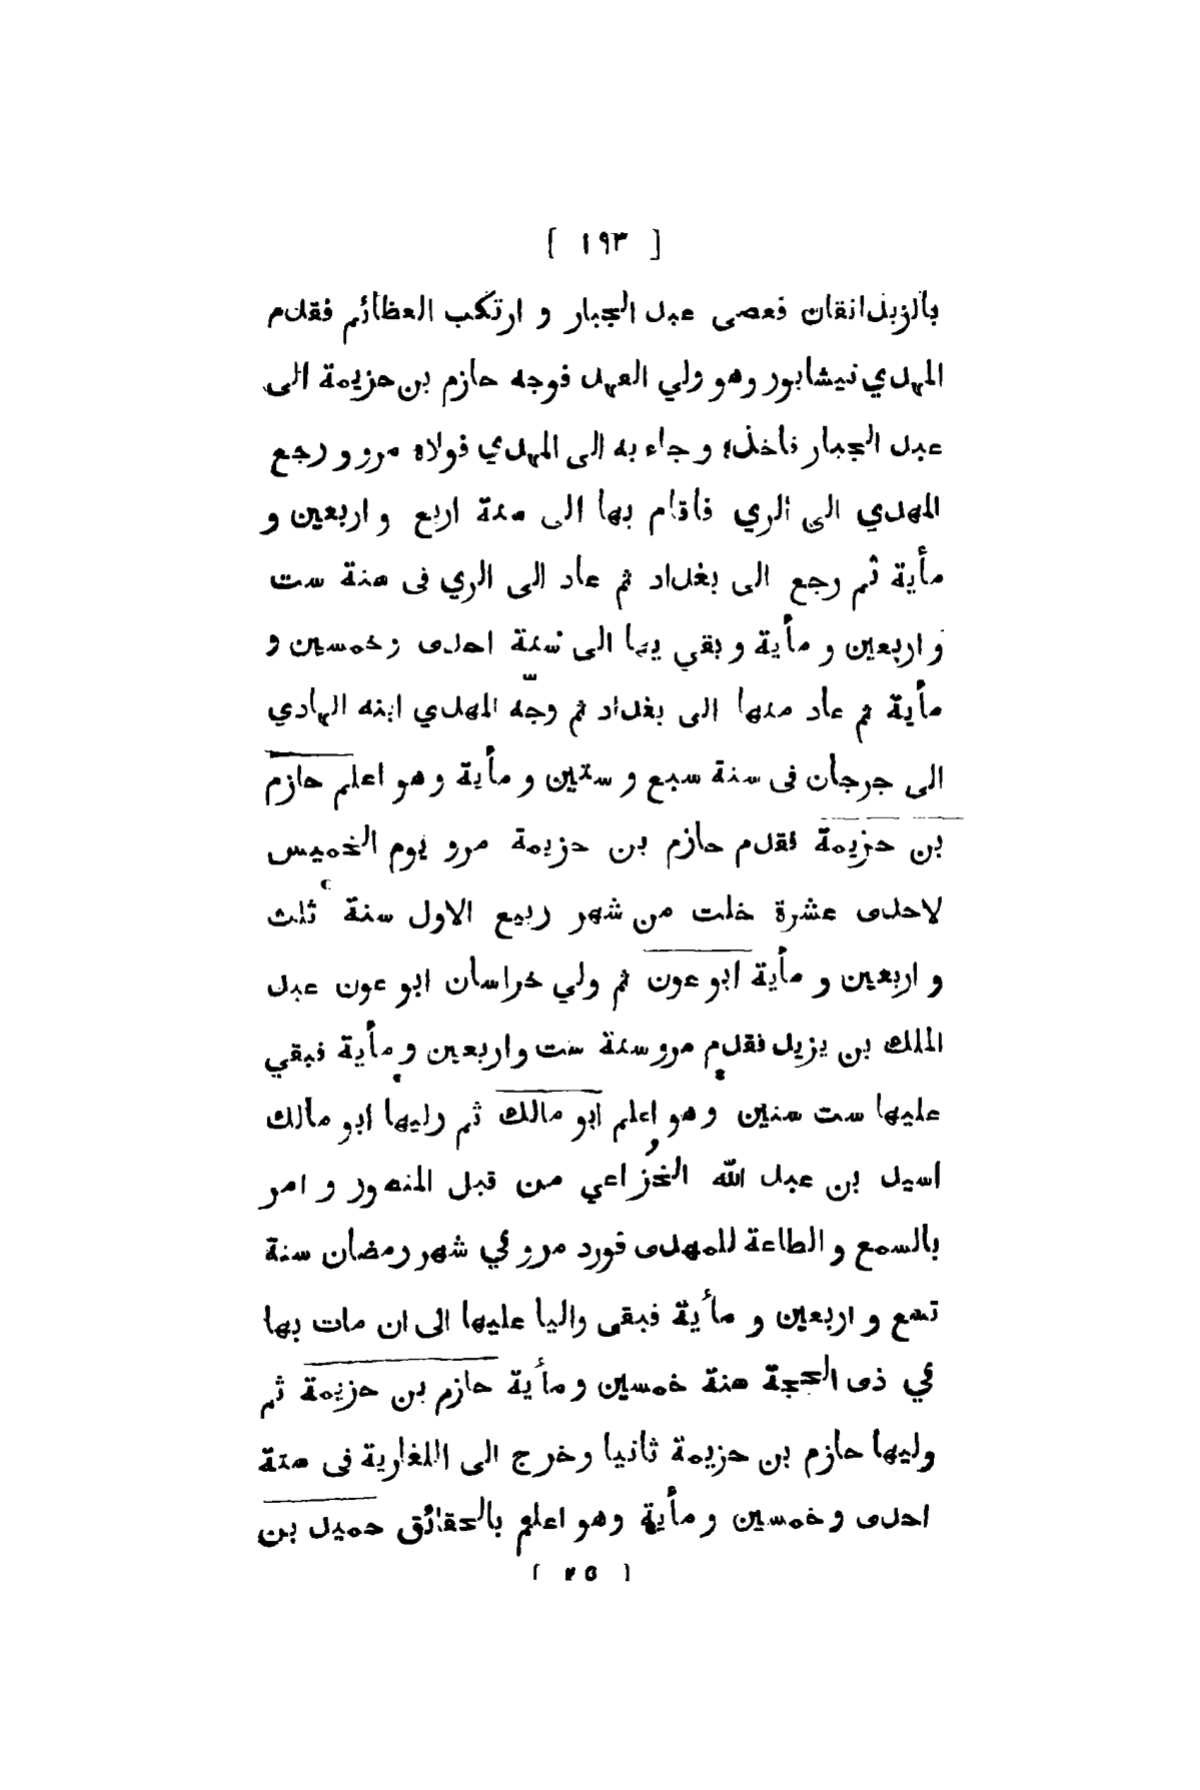 [ ١٩٣ ]
بالزبذانقان فعصى عبد الجبار و ارتكب العظائم فقدم
المهدي نيشابور وهو ولي العهد فوجه حازم بن حزيمة الى
عبد الجبار فاخذه و جاء به الى المهدي فولاه مرو و رجع
المهدي الى الري فاقام بها الى سنة اربع و اربعين و
مأية ثم رجع الى بغداد ثم عاد الى الري فى سنة ست
و اربعين و مأية و بقي بها الى سنة احدى و خمسين و
مأية ثم عاد منها الى بغداد ثم وجّه المهدي ابنه الهادي
الى جرجان فى سنة سبع و ستين و مأية و هو اعلم حازم
بن حزيمة فقدم حازم بن حزيمة مرو يوم الخميس
لاحدى عشرة خلت من شهر ربيع الاول سنة ثلث
و اربعين و مأية ابو عون ثم ولي خراسان ابو عون عبد
الملك بن يزيد فقدم مرو سنة ست و اربعين و مأية فبقي
عليها ست سنين و هو اعلم ابو مالك ثم وليها ابو مالك
اسيد بن عبد الله الخُزاعي من قبل المنصور و امر
بالسمع و الطاعة للمهدى فورد مرو في شهر رمضان سنة
تسع و اربعين و مأية فبقى واليا عليها الى ان مات بها
في ذى الحجة سنة خمسين و مأية حازم بن حزيمة ثم
وليها حازم بن حزيمة ثانيا و خرج الى اللغارية فى سنة
احدى و خمسين و مأية وهو اعلم بالحقائق حميد بن
[ ٢٥ ]